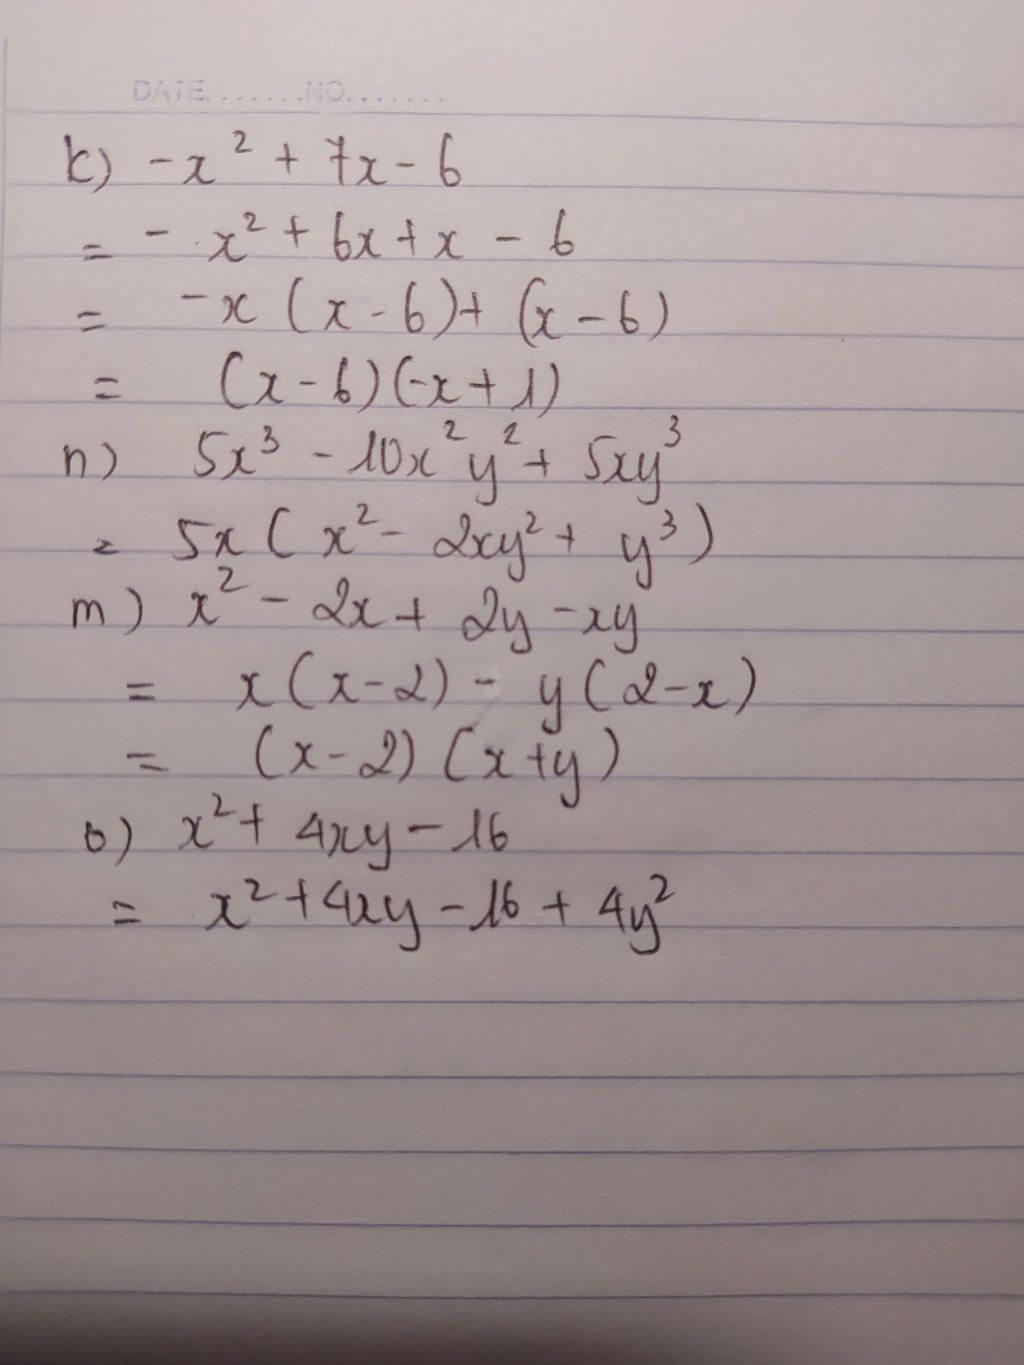 DATE.......NO.......
k) -x² + 7x - 6
= - x² + 6x + x - 6
= -x (x - 6) + (x - 6)
= (x - 6) (-x + 1)
n) 5x³ - 10x²y² + 5xy³
= 5x ( x² - 2xy² + y³ )
m) x² - 2x + 2y - xy
= x (x - 2) - y (2 - x)
= (x - 2) (x + y)
o) x² + 4xy - 16
= x² + 4xy - 16 + 4y²